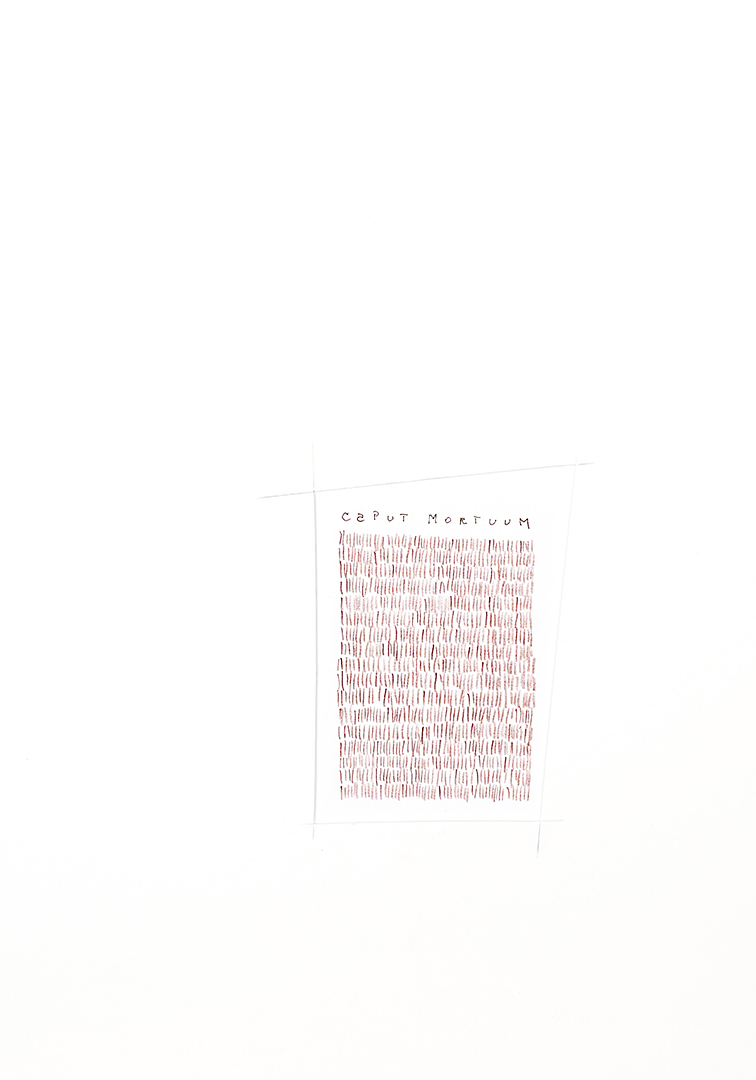 CaPUT MORTUUM